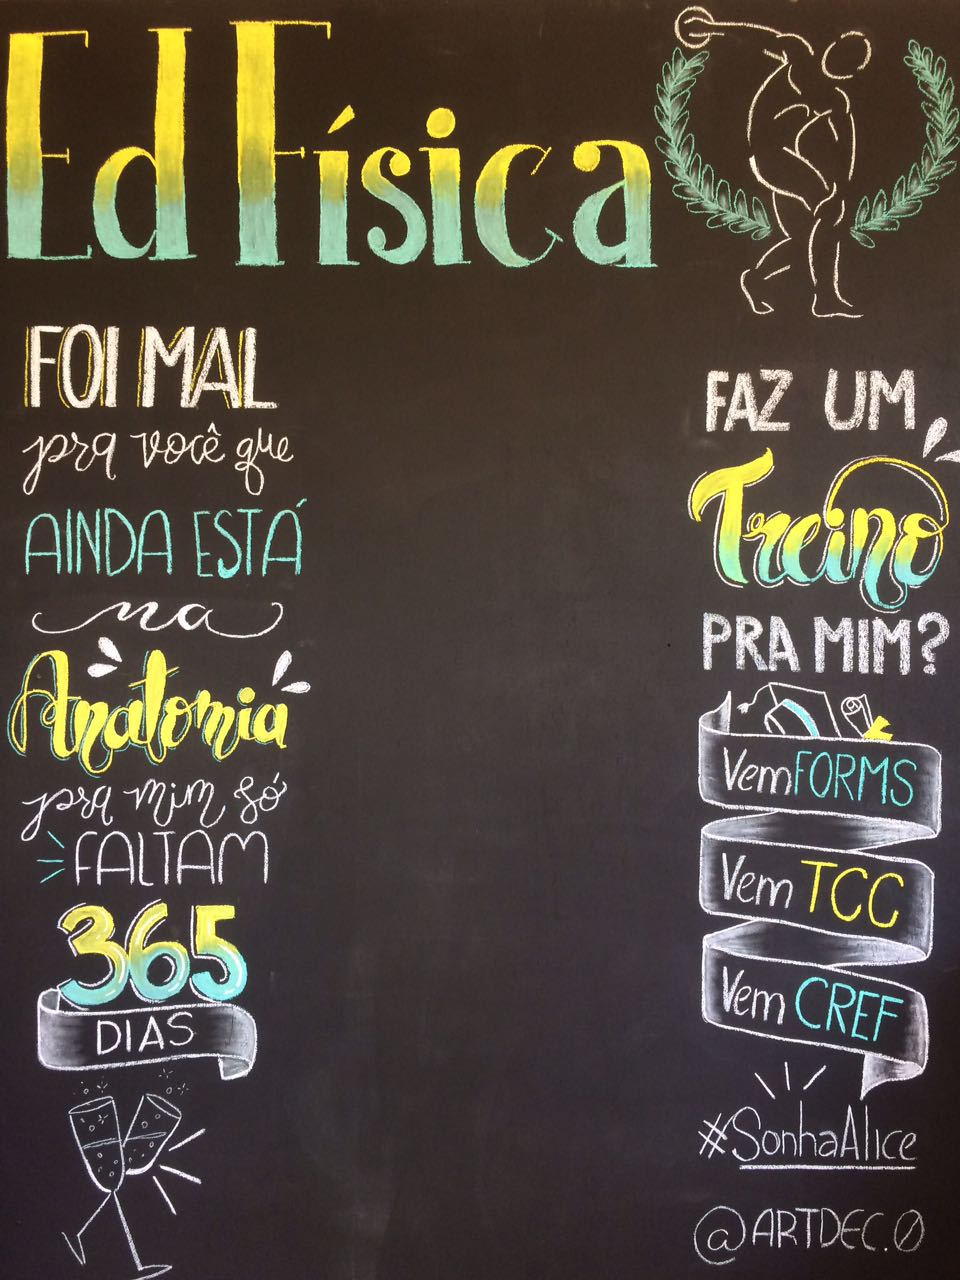 Ed Física
FOI MAL
pra você que
AINDA ESTÁ
na
Anatomia
pra mim só
FALTAM
365
DIAS
FAZ UM
Treino
PRA MIM?
Vem FORMS
Vem TCC
Vem CREF
#SonhaAlice
@ARTDEC.0